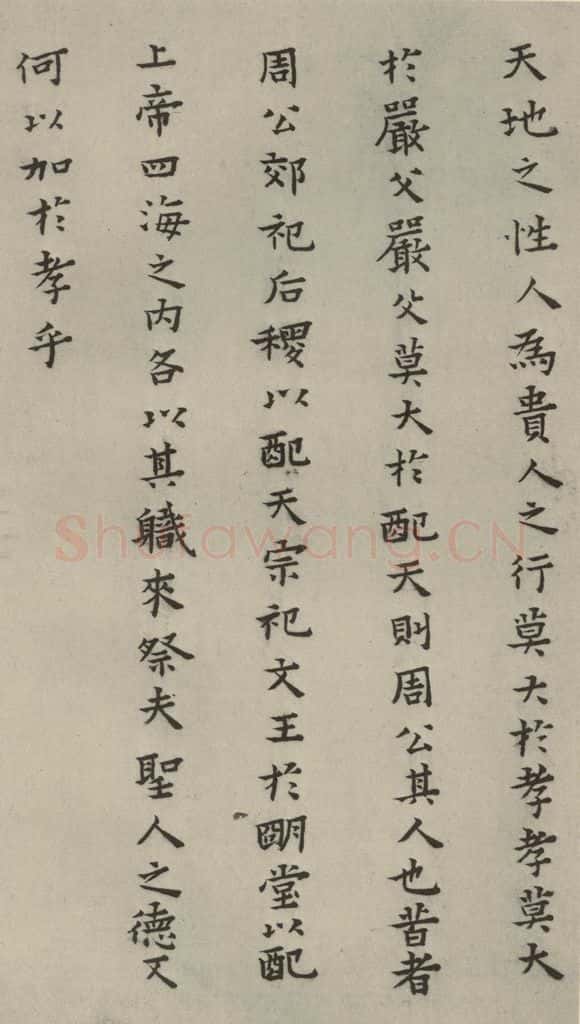 天地之性人為貴人之行莫大於孝孝莫大
於嚴父嚴父莫大於配天則周公其人也昔者
周公郊祀后稷以配天宗祀文王於明堂以配
上帝四海之内各以其職來祭夫聖人之德又
何以加於孝乎
Shufawang.CN